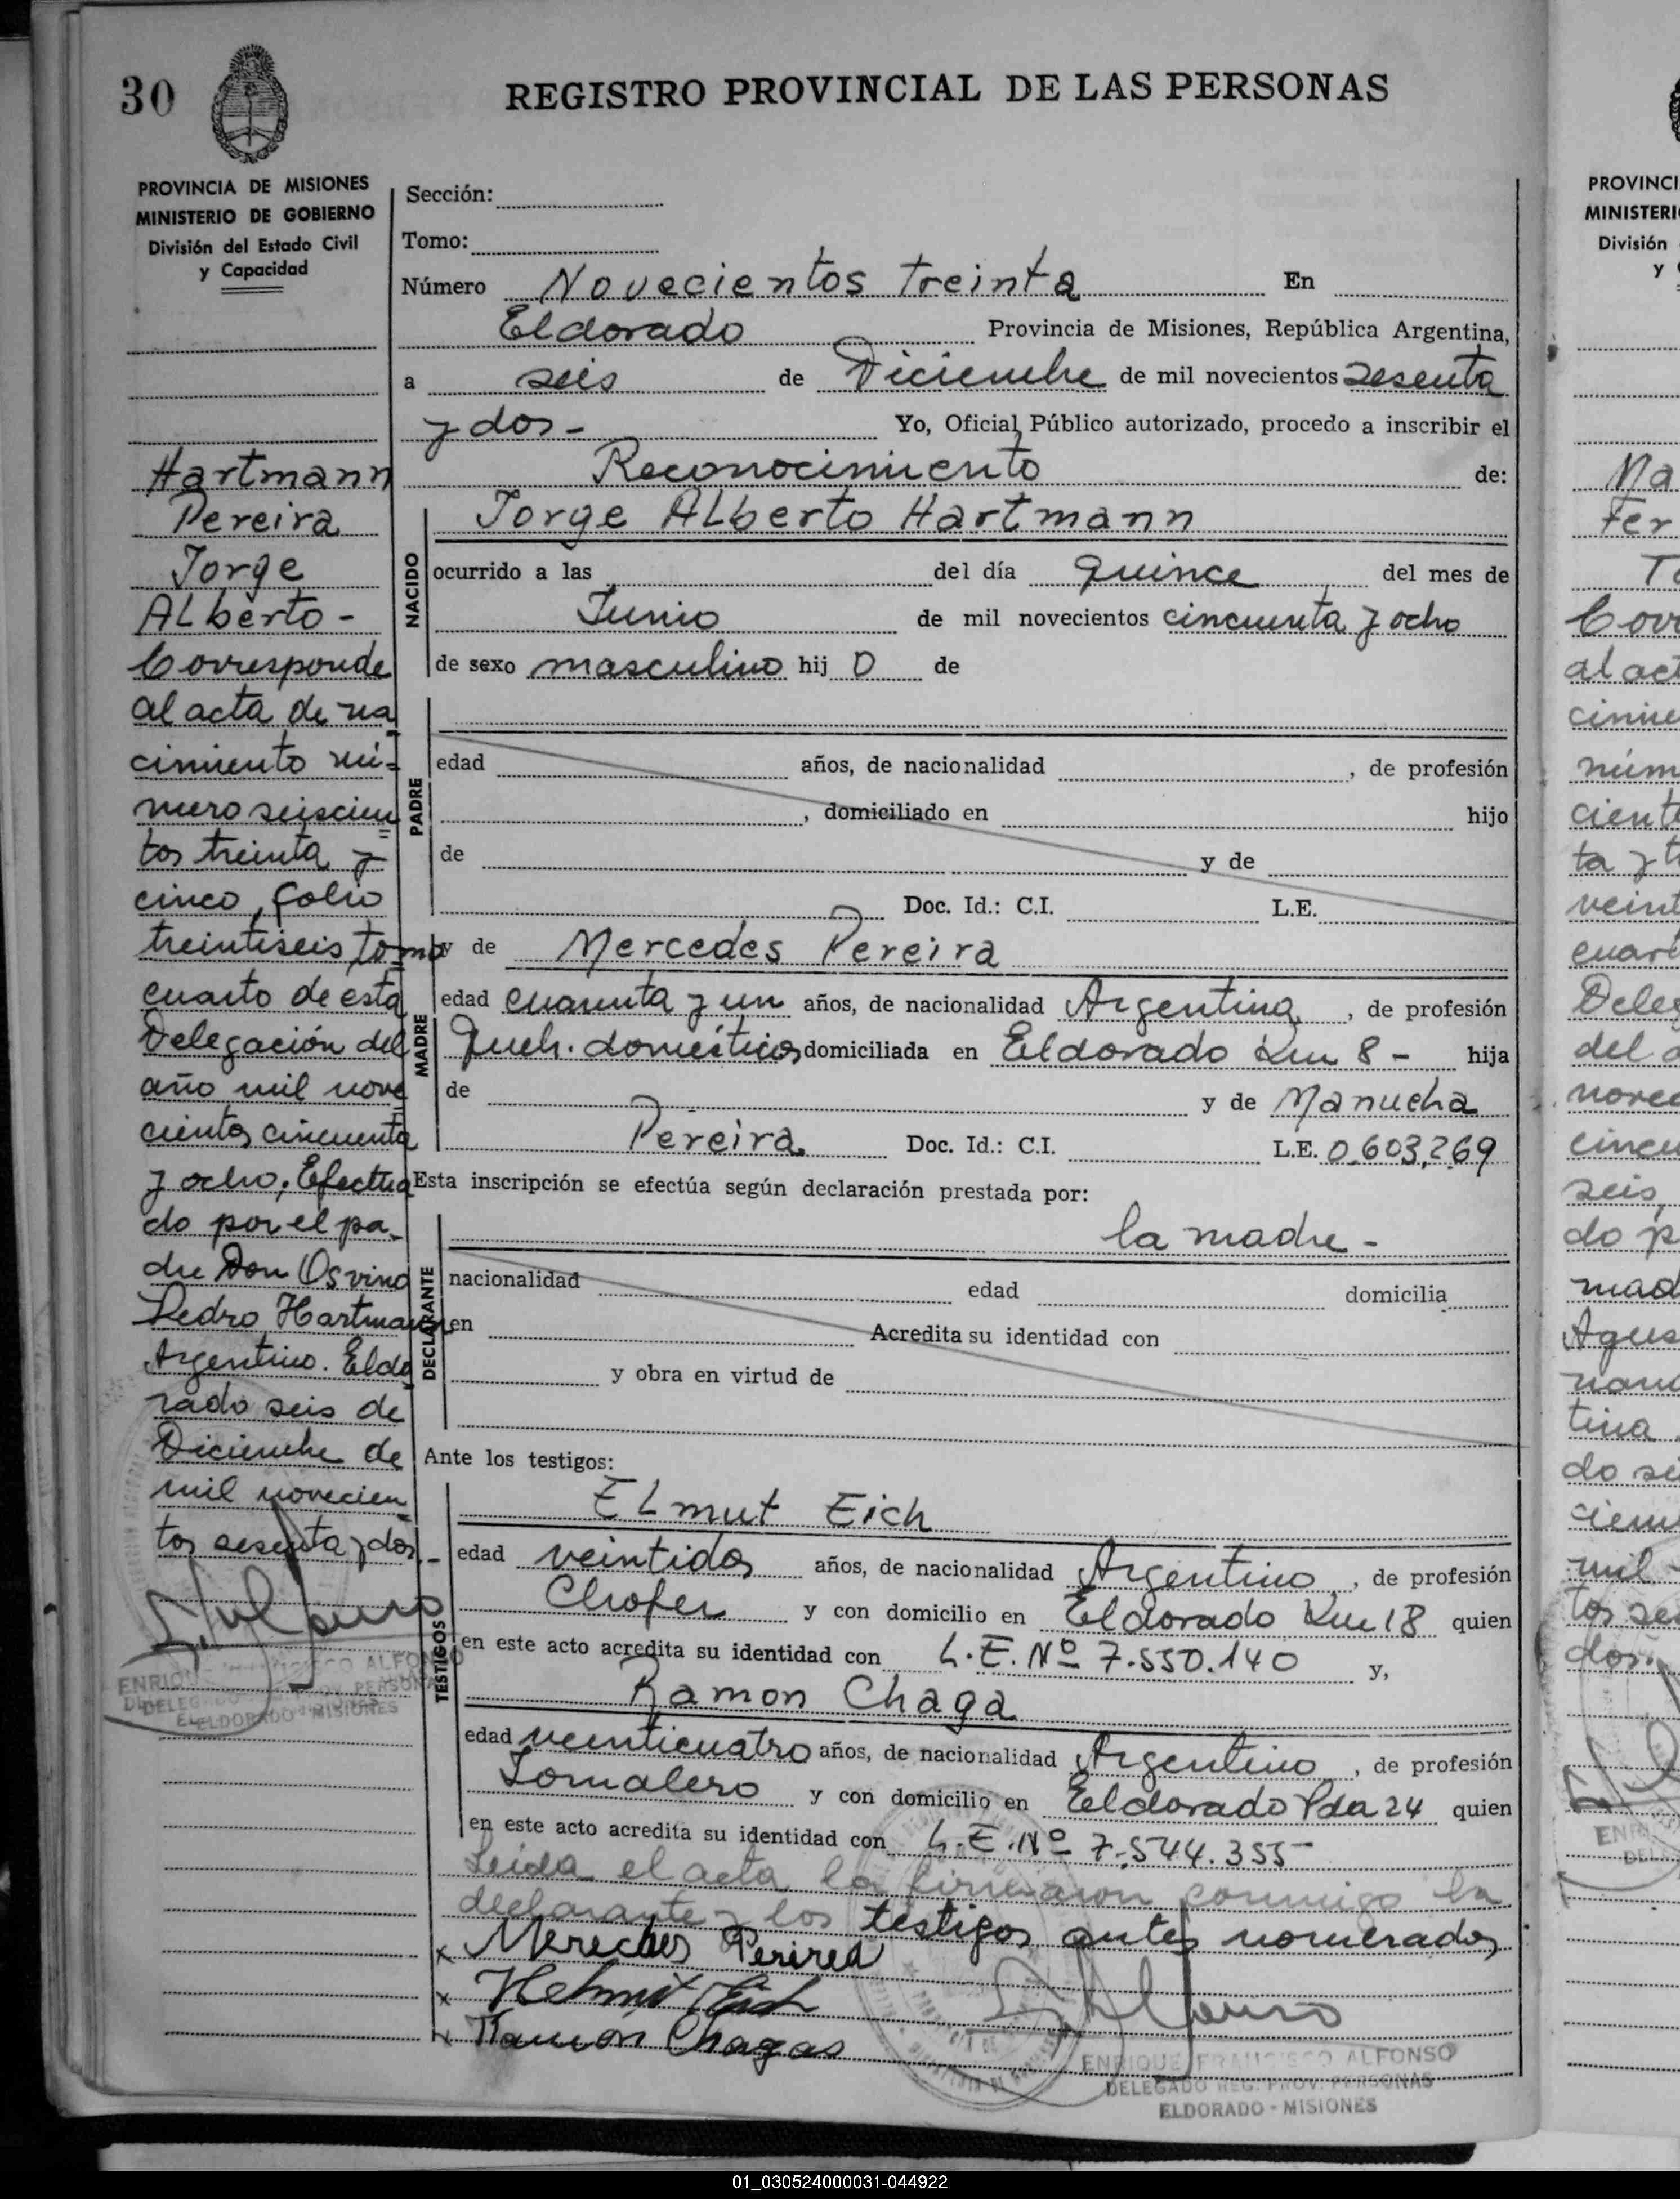 30
REGISTRO PROVINCIAL DE LAS PERSONAS
PROVINCIA DE MISIONES
MINISTERIO DE GOBIERNO
División del Estado Civil
y Capacidad
Hartmann
Pereira
Jorge
ALberto -
Corresponde
al acta de na
cimiento nú=
mero seiscien
tos treinta y
cinco, folio
treintiseis, tomo
cuarto de esta
Delegación del
año mil nove
cientos cincuenta
y ocho; Efectua
do por el pa-
dre Don Osvino
Pedro Hartmann
Argentino. Eldo
rado seis de
Diciembre de
mil novecien
tos sesenta y dos. -
ENRIQUE FRANCISCO ALFONSO
ELDORADO - MISIONES
Sección:
Tomo:
Número Novecientos treinta En
Eldorado Provincia de Misiones, República Argentina,
a seis de Diciembre de mil novecientos sesenta
y dos - Yo, Oficial Público autorizado, procedo a inscribir el
Reconocimiento de:
NACIDO
Jorge ALberto Hartmann
ocurrido a las del día quince del mes de
Junio de mil novecientos cincuenta y ocho
de sexo masculino hij o de
PADRE
edad años, de nacionalidad , de profesión
, domiciliado en hijo
de y de
Doc. Id.: C.I. L.E.
y de Mercedes Pereira
MADRE
edad cuarenta y un años, de nacionalidad Argentina , de profesión
Queh. domésticos domiciliada en Eldorado Km 8 - hija
de y de Manucha
Pereira. Doc. Id.: C.I. L.E. 0.603.269
Esta inscripción se efectúa según declaración prestada por:
la madre -
DECLARANTE
nacionalidad edad domicilia
en Acredita su identidad con
y obra en virtud de
Ante los testigos:
TESTIGOS
ELmut Eich
edad veintidos años, de nacionalidad Argentino , de profesión
Chofer y con domicilio en Eldorado Km 18 quien
en este acto acredita su identidad con L.E. Nº 7.550.140 y,
Ramon Chaga
edad veinticuatro años, de nacionalidad Argentino , de profesión
Jornalero y con domicilio en Eldorado Pda 24 quien
en este acto acredita su identidad con L.E. Nº 7.544.355-
Leida el acta la firmaron conmigo la
declarante y los testigos antes nomerados
x Merecdes Perirea
x Helmut Eich
x Ramon Chagas
ENRIQUE FRANCISCO ALFONSO
DELEGADO REG. PROV. PERSONAS
ELDORADO - MISIONES
PROVINCI
MINISTERI
División
y
Na
Fer
al act
cimie
núm
cient
ta y t
veint
cuart
Deleg
del a
novec
cincu
seis,
do p
mad
Agus
tina
do se
mil
tos se
dos.
01_030524000031-044922